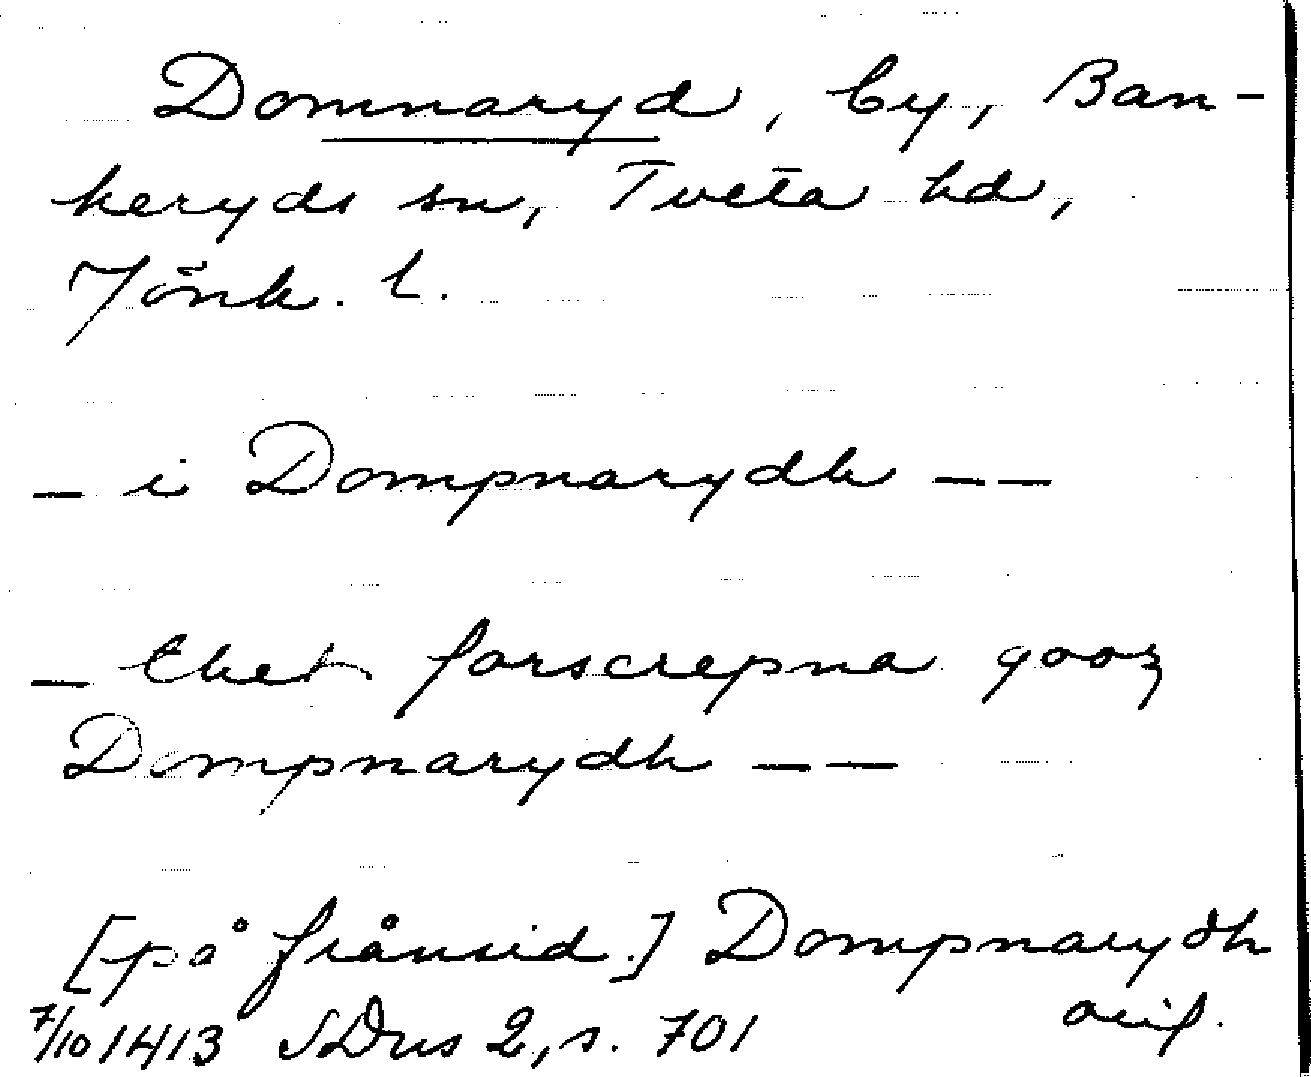 Domnaryd, by, Ban-
keryds sn, Tveta hd,
Jönk. l.
— i Dompnarydh — —
— thet forscrepna gooz
Dompnarydh — —
[på frånsid.] Dompnarydh
7/10 1413 SDns 2, s. 701 orig.